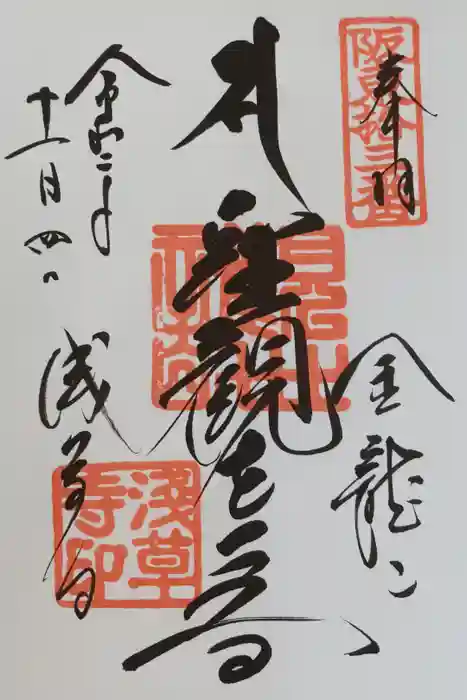 奉拝
坂東拾三番
金龍山
聖観世音
令和二年
十一月四日
浅草寺
浅草寺印